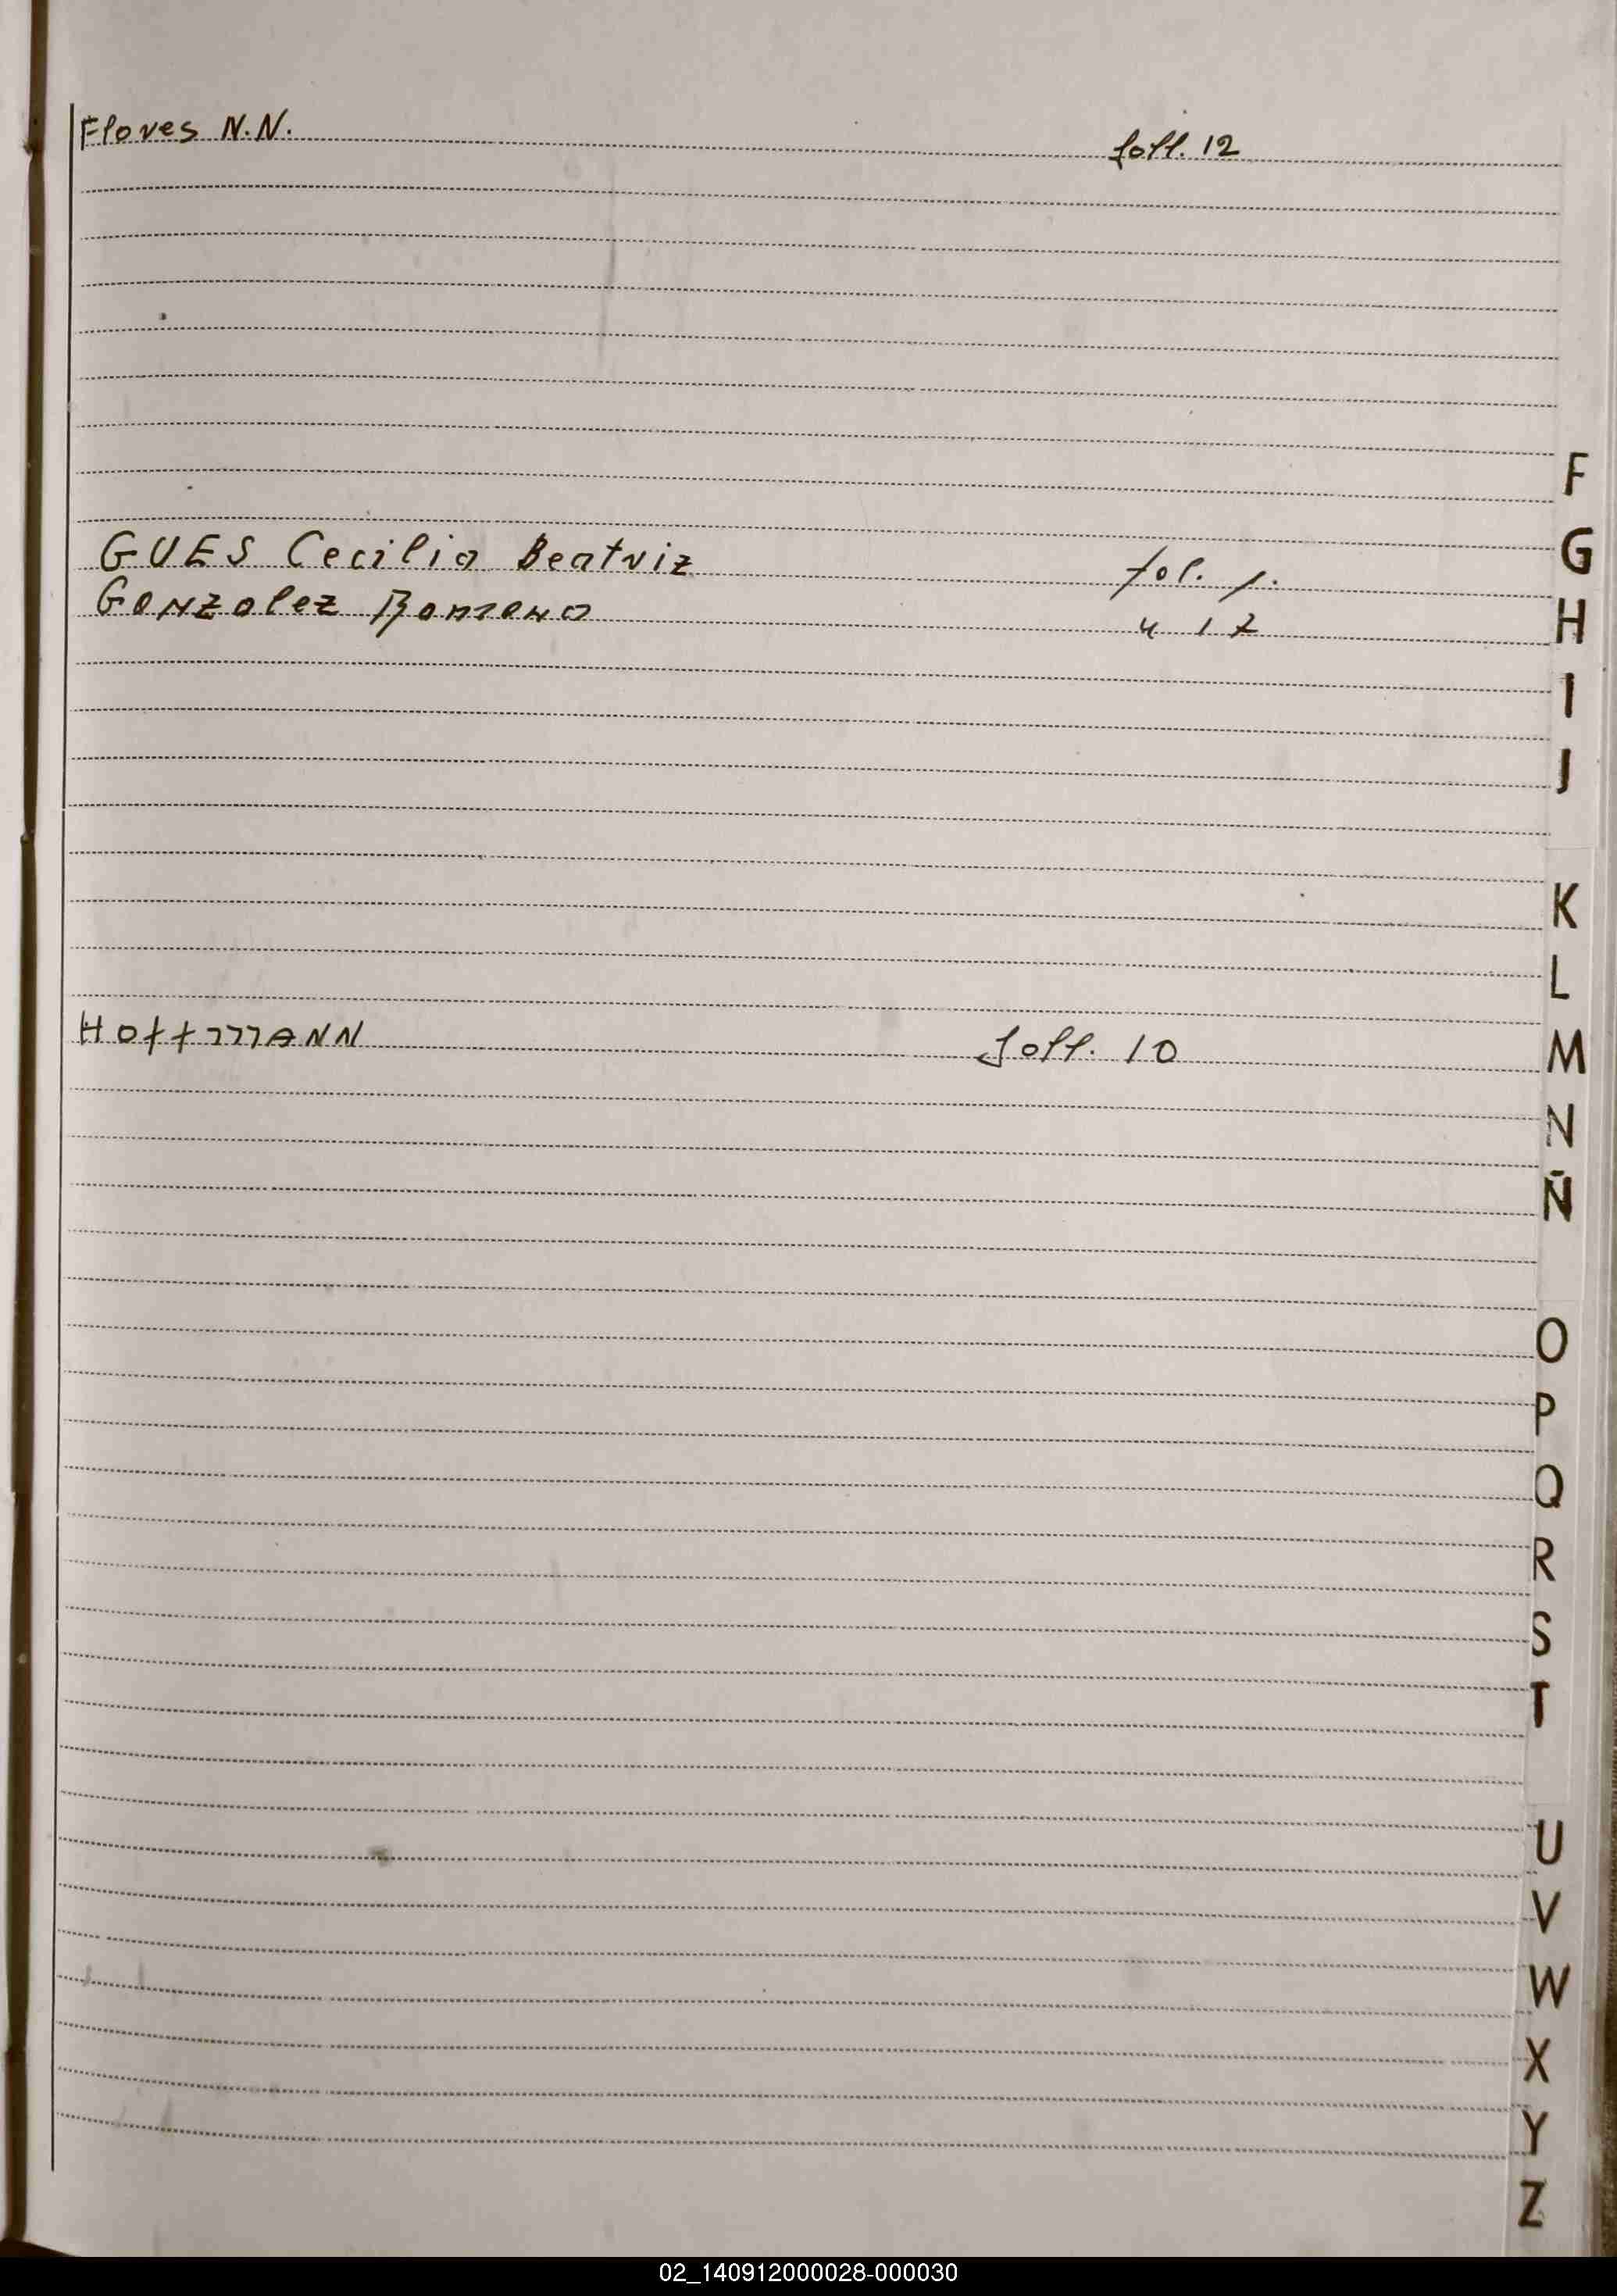 Flores N.N. foll. 12
F
GUES Cecilia Beatriz fol. 1.
G
Gonzalez
H
I
J
K
L
HOffmANN foll. 10
M
N
Ñ
O
P
Q
R
S
T
U
V
W
X
Y
Z
02_140912000028-000030